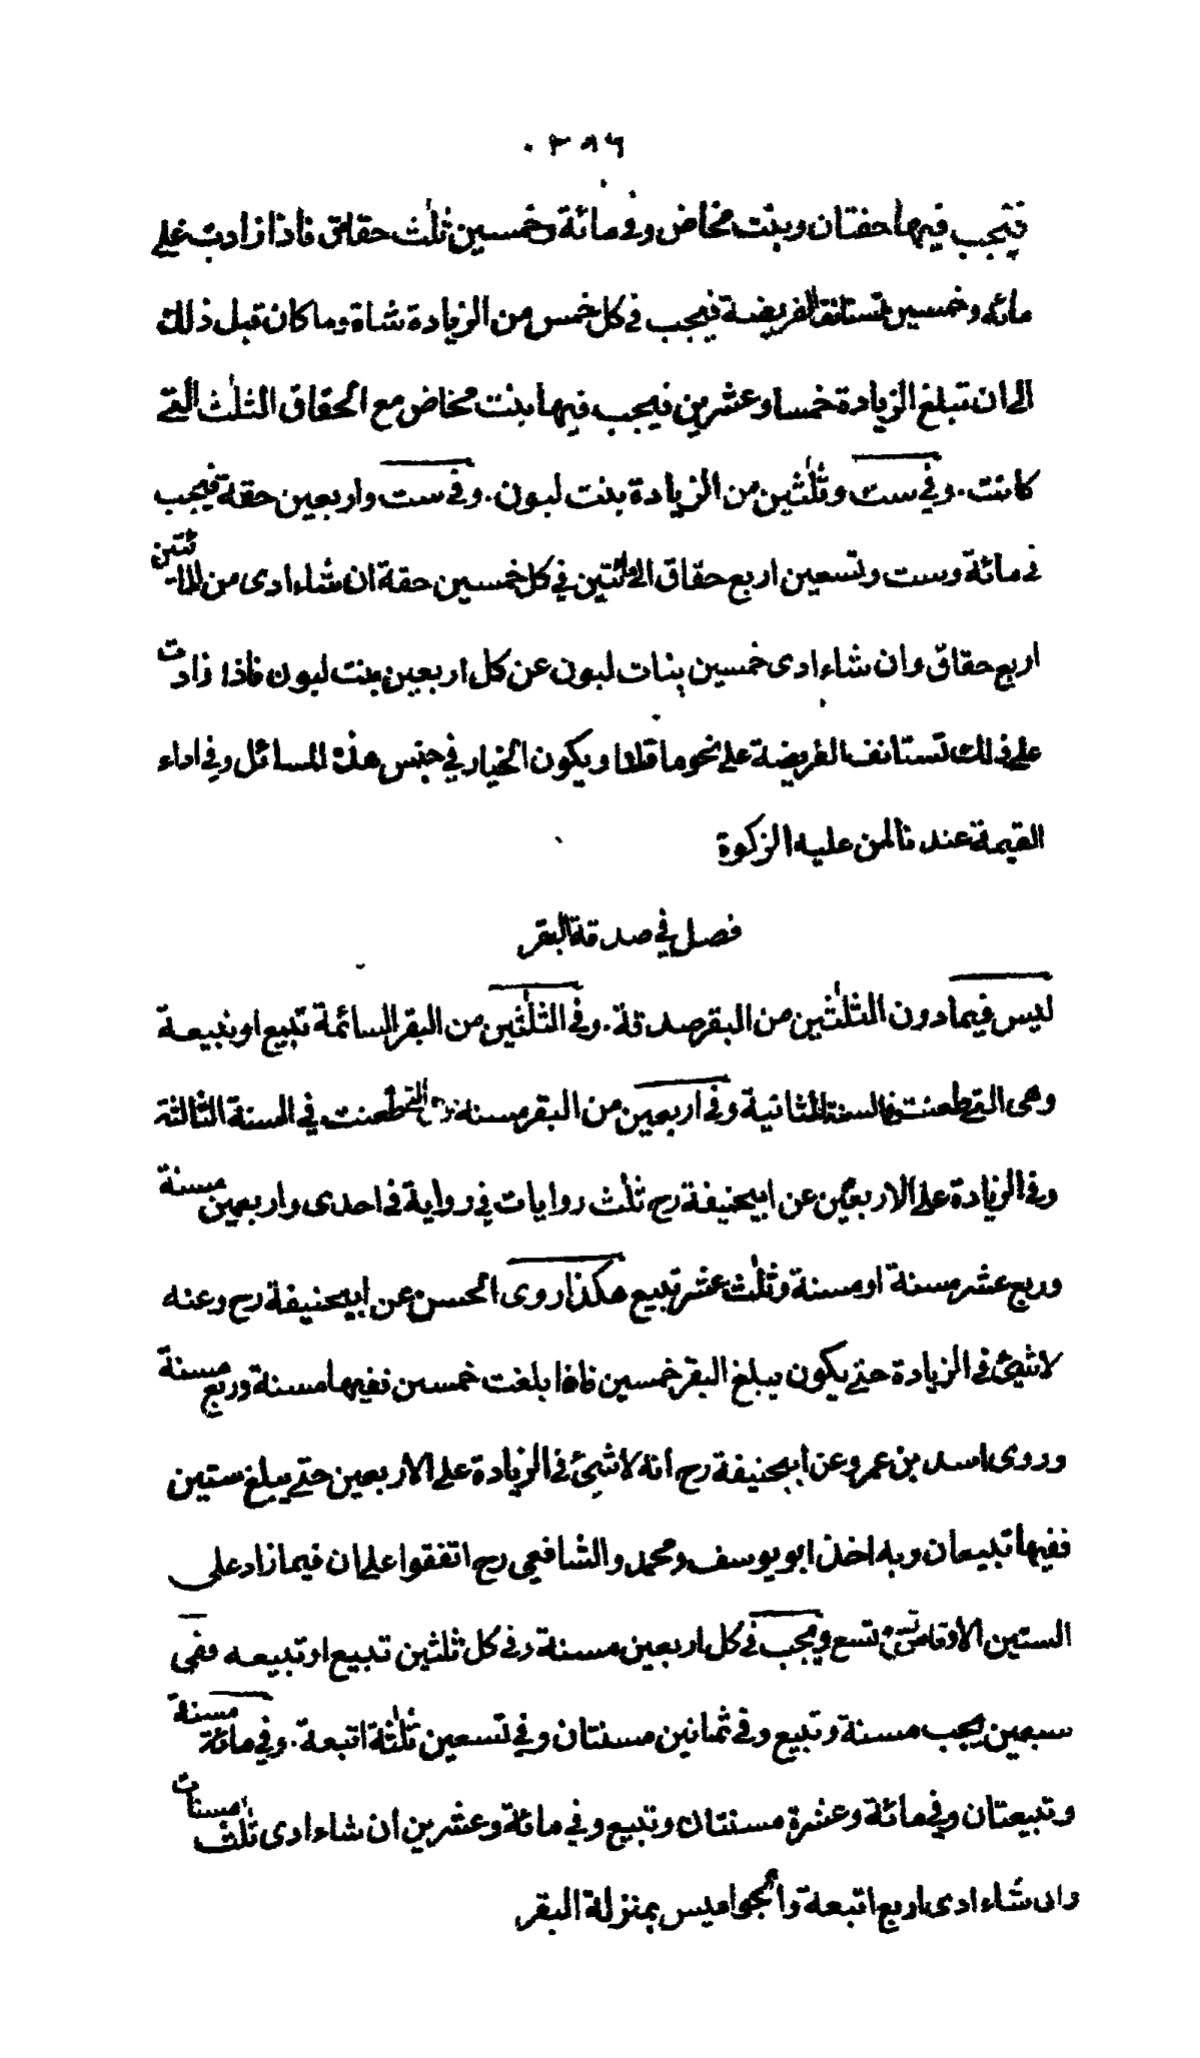 ٣٨٦
فتجب فيها حقتان وبنت مخاض وفى مائة وخمسين ثلث حقائق فاذا زادت على
مائة وخمسين تستانف الفريضة فيجب فى كل خمس من الزيادة شاة وما كان قبل ذلك
الى ان تبلغ الزيادة خمسا وعشرين فيجب فيها بنت مخاض مع الحقاق الثلث التى
كانت. وفى ست وثلثين من الزيادة بنت لبون. وفى ست واربعين حقة فيجب
فى مائة وست وتسعين اربع حقاق الى مائتين فى كل خمسين حقة ان شاء ادى من المائتين
اربع حقاق وان شاء ادى خمسين بنات لبون عن كل اربعين بنت لبون فاذا زادت
على ذلك تستانف الفريضة على نحو ما قلنا ويكون الخيار فى جنس هذه المسائل وفى اداء
القيمة عندنا لمن عليه الزكوة
فصل فى صدقة البقر
ليس فيما دون الثلثين من البقر صدقة. وفى الثلثين من البقر السائمة تبيع او تبيعة
وهى التى طعنت فى السنة الثانية وفى اربعين من البقر مسنة التى طعنت فى السنة الثالثة
وفى الزيادة على الاربعين عن ابيحنيفة رح ثلث روايات فى رواية فى احدى واربعين مسنة
وربع عشر مسنة او مسنة وثلث عشر تبيع هكذا روى الحسن عن ابيحنيفة رح وعنه
لا شيئ فى الزيادة حتى يكون يبلغ البقر خمسين فاذا بلغت خمسين ففيها مسنة وربع مسنة
وروى اسد بن عمرو عن ابيحنيفة رح انه لا شيئ فى الزيادة على الاربعين حتى يبلغ ستين
ففيها تبيعان وبه اخذ ابو يوسف ومحمد والشافعى رح اتفقوا على ان فيما زاد على
الستين الاوقاص تسع تسع ويجب فى كل اربعين مسنة وفى كل ثلثين تبيع او تبيعه ففى
سبعين يجب مسنة وتبيع وفى ثمانين مسنتان وفى تسعين ثلثة اتبعة. وفى مائة مسنة
وتبيعتان وفى مائة وعشرة مسنتان وتبيع وفى مائة وعشرين ان شاء ادى ثلث مسنات
وان شاء ادى اربع اتبعة والجواميس بمنزلة البقر